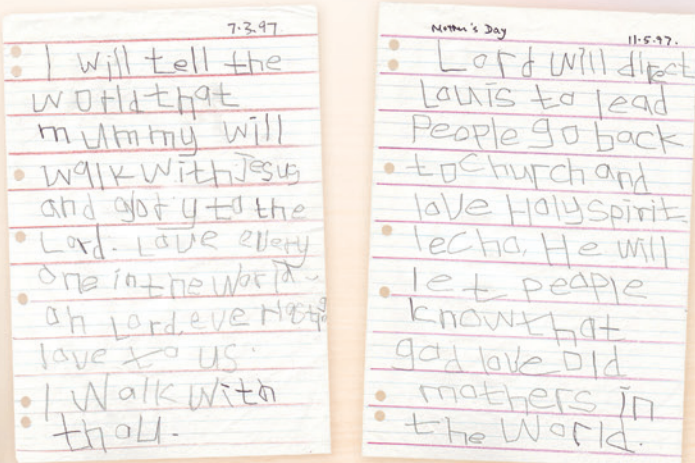 7.3.97.
I will tell the
world that
mummy will
walk with Jesus
and glory to the
Lord. Love every
one in the world.
oh Lord, everlasting
love to us.
I Walk with
thou.
Mother's Day
11.5.97.
Lord will direct
Louis to lead
People go back
to church and
love Holy spirit.
He will
let people
know that
god love old
mothers in
the World.